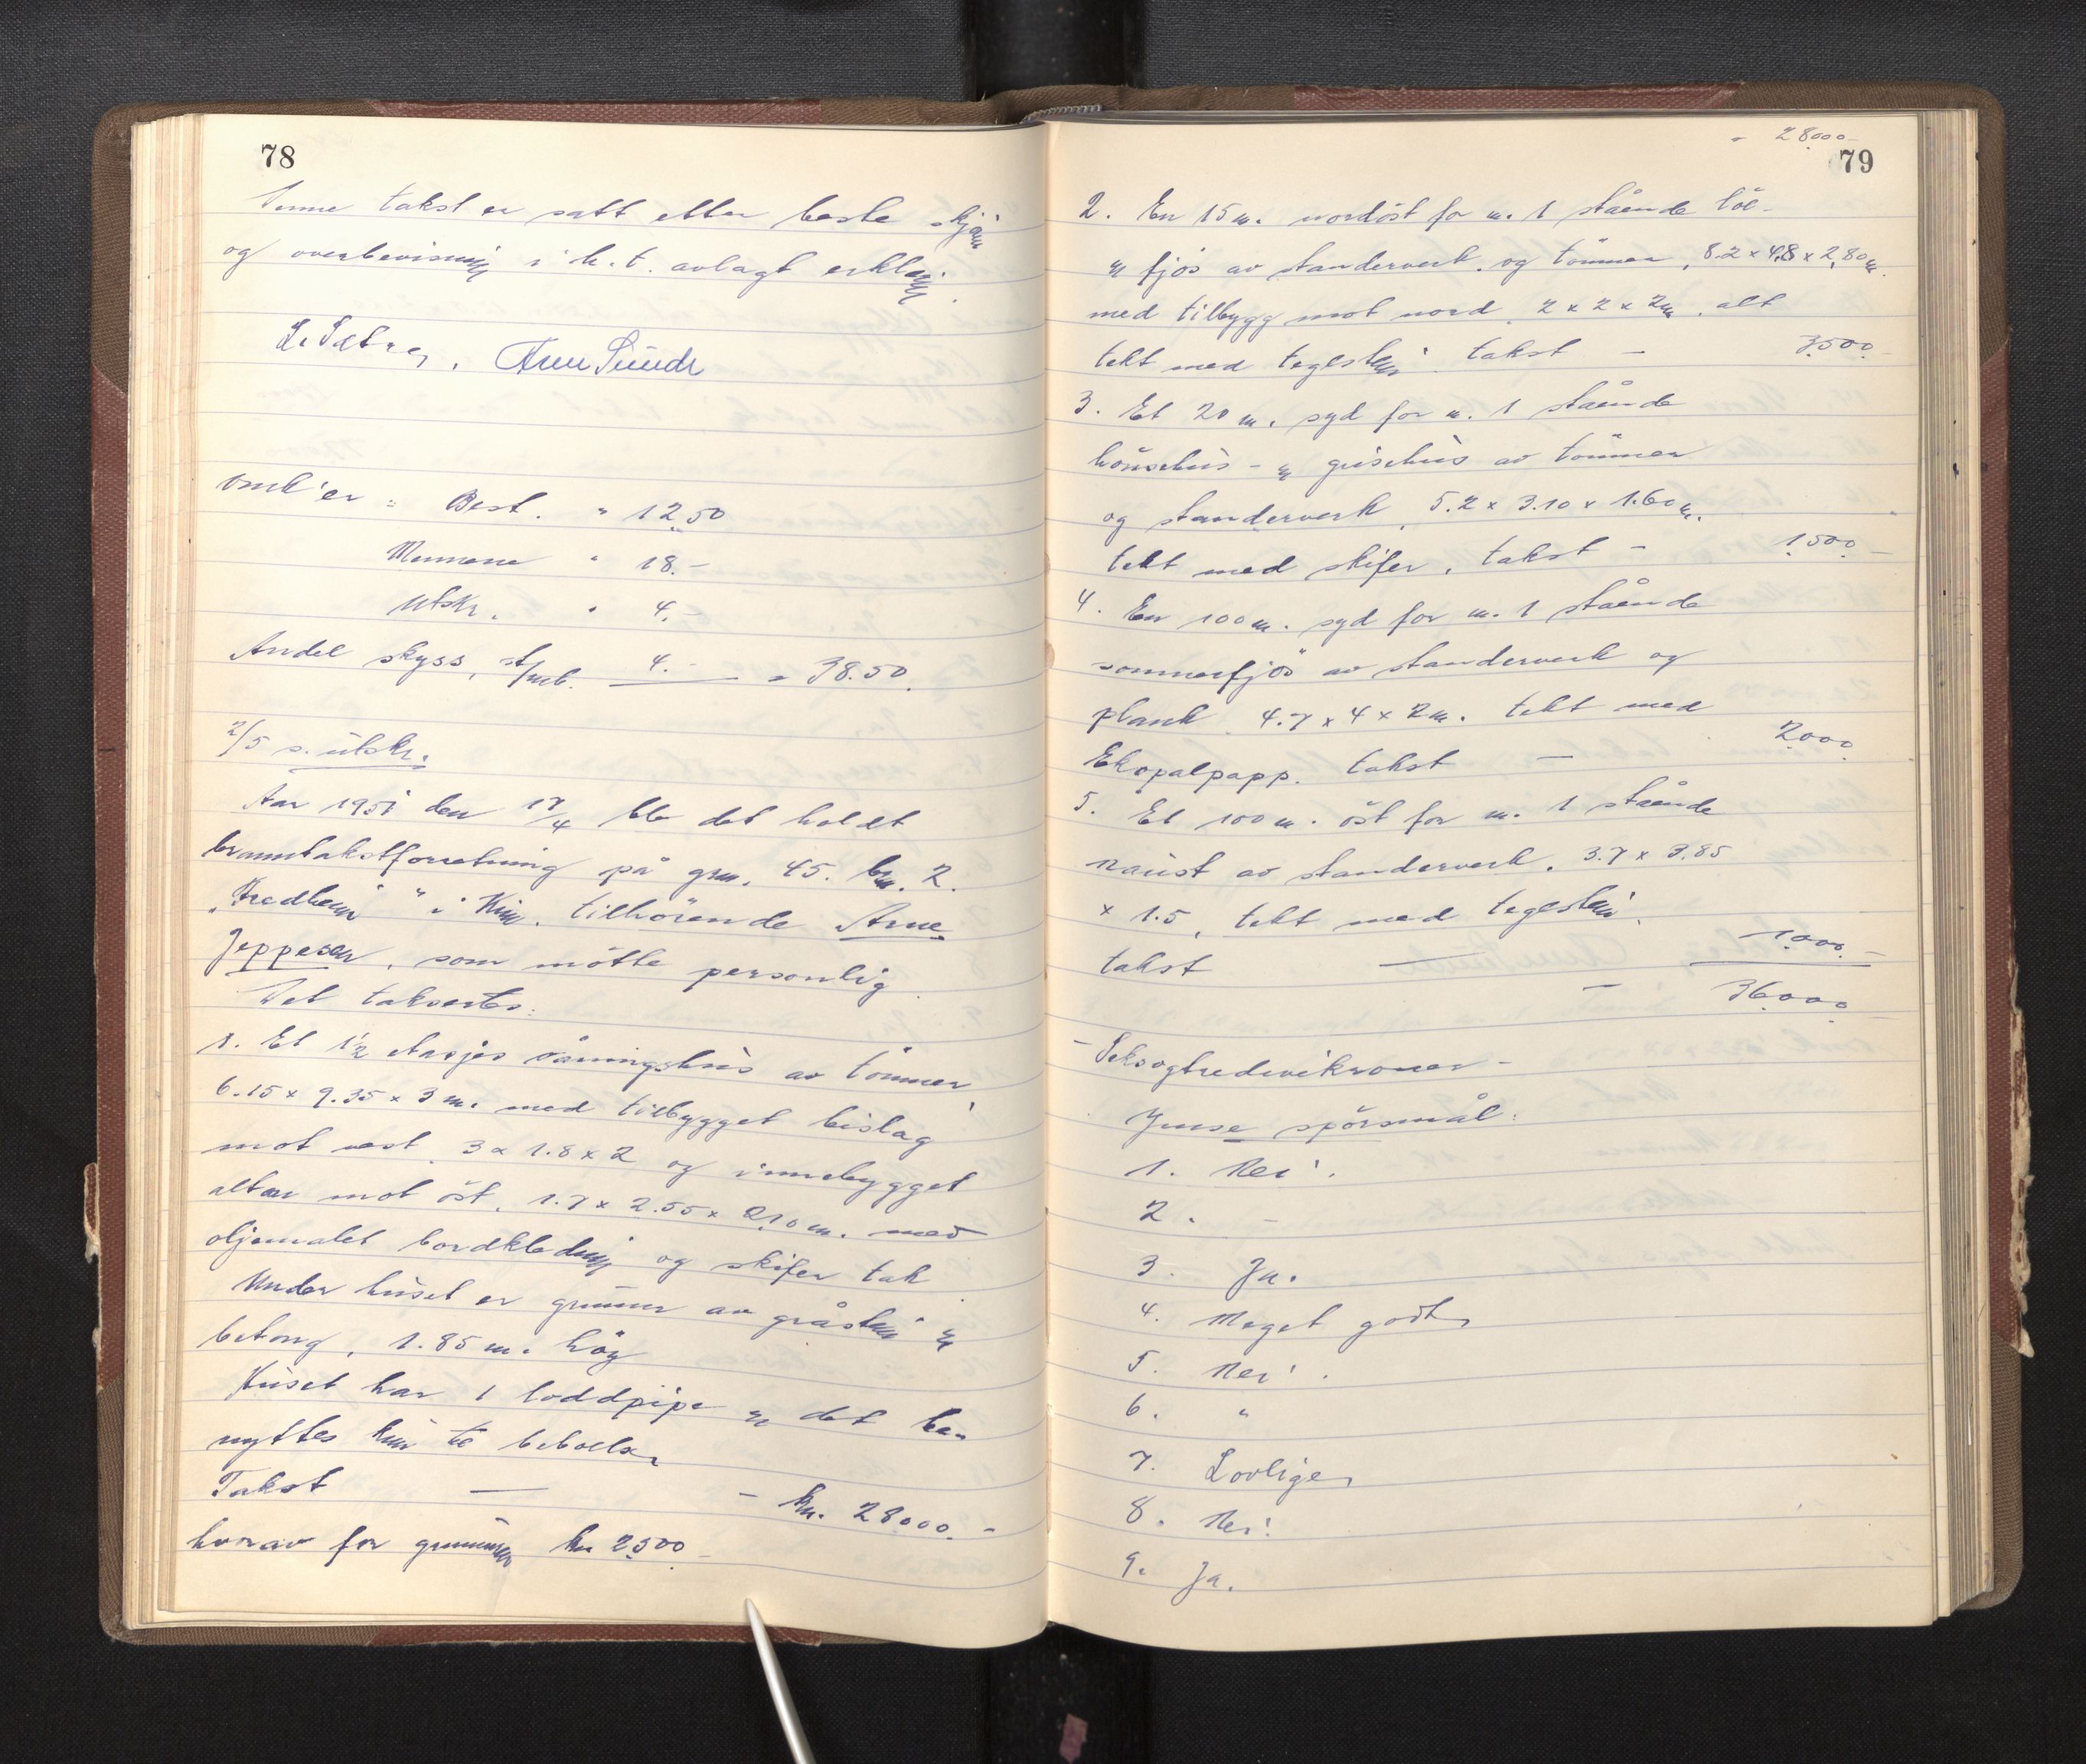 78
Denne takst er satt etter beste skjønn
og overbevisning i h.t. avlagt erklæring.
L. Sætre, Arne Sunde
Omk'er = Best. " 12.50
Mennene " 18.-
Utskr. " 4.-
Andel skyss, st/mb. 4.- = 38.50.
2/5 s. utskr.
Aar 1951 den 17/4 ble det holdt
branntakstforretning på grn. 45. brn. 2.
"Fredheim" i tilhörende Arne
Jeppesen, som mötte personlig.
Det taksertes:
1. Et 1 1/2 etasjes våningshus av tömmer,
6.15 x 9.35 x 3 m. med tilbygget bislag
mot vest, 3 x 1.8 x 2 og innebygget
altan mot öst, 1.7 x 2.55 x 2.10 m. med
oljemalet bordkledning og skifer tak.
Under huset er grunnmur av gråstein og
betong, 1.85 m. hög
Huset har 1 loddpipe og det be-
nyttes kun til beboelse,
Takst — - kr. 28000.-
hvorav for grunnmuren kr 2500.-
- 28000-
79
2. En 15 m. nordöst for nr. 1 stående löe-
og fjös av standerverk og tömmer, 8.2 x 4.8 x 2.80 m.
med tilbygg mot nord, 2 x 2 x 2 m, alt
tekt med teglstein. takst - 3500.-
3. Et 20 m. syd for nr. 1 stående
hönsehus- og grisehus av tömmer
og standerverk, 5.2 x 3.10 x 1.60 m.
tekt med skifer, takst - 1500.-
4. En 100 m. syd for nr. 1 stående
sommerfjös av standerverk og
plank, 4.7 x 4 x 2 m. tekt med
Ekopalpapp. takst — 2000.
5. Et 100 m. öst for nr. 1 stående
naust av standerverk, 3.7 x 3.85
x 1.5, tekt med teglstein.
takst — 1000.-
- 36000.-
- Seksogtredivekroner -
Jmse spörsmål:
1. Nei.
2. -
3. Ja.
4. Meget godt,
5. Nei.
6. "
7. Lovlige,
8. Nei.
9. Ja.